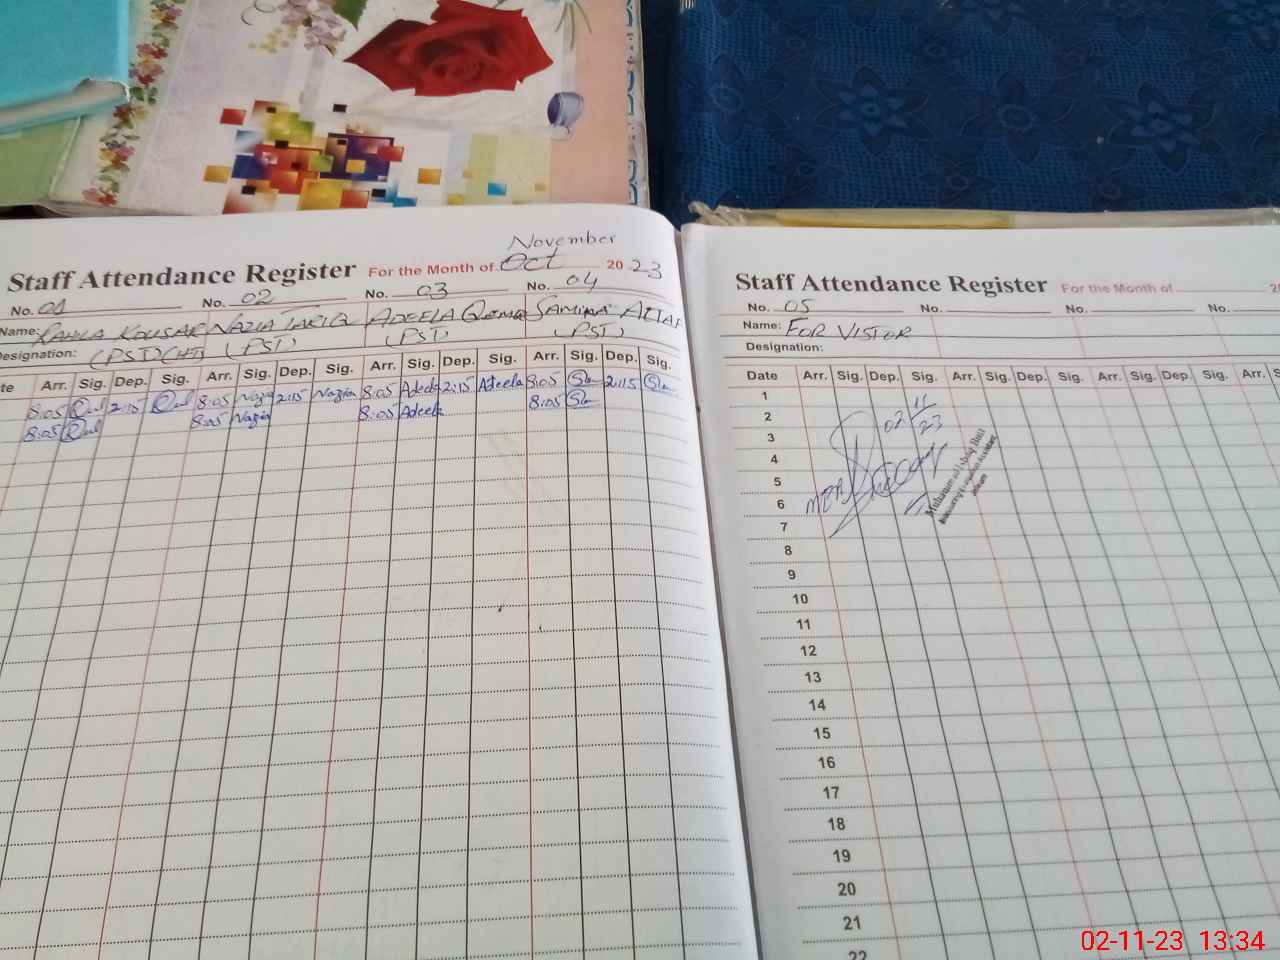 November
Staff Attendance Register For the Month of Oct 2023
No. 01 No. 02 No. 03 No. 04
Name: KOUSAR NAZIA TARIQ ADEELA SAMINA
Designation: (PST) (PST) (PST) (PST)
te Arr. Sig. Dep. Sig. Arr. Sig. Dep. Sig. Arr. Sig. Dep. Sig. Arr. Sig. Dep. Sig.
8:05 2:15 8:05 Nazia 2:15 Nazia 8:05 Adeela 2:15 Adeela 8:05 2:15
8:05 8:05 Nazia 8:05 Adeela 8:05
Staff Attendance Register For the Month of 20
No. 05 No. No. No.
Name: FOR VISTOR
Designation:
Date Arr. Sig. Dep. Sig. Arr. Sig. Dep. Sig. Arr. Sig. Dep. Sig. Arr. S
1
2
3
4
5
6
7
8
9
10
11
12
13
14
15
16
17
18
19
20
21
22
02/11/23
MEA
02-11-23 13:34